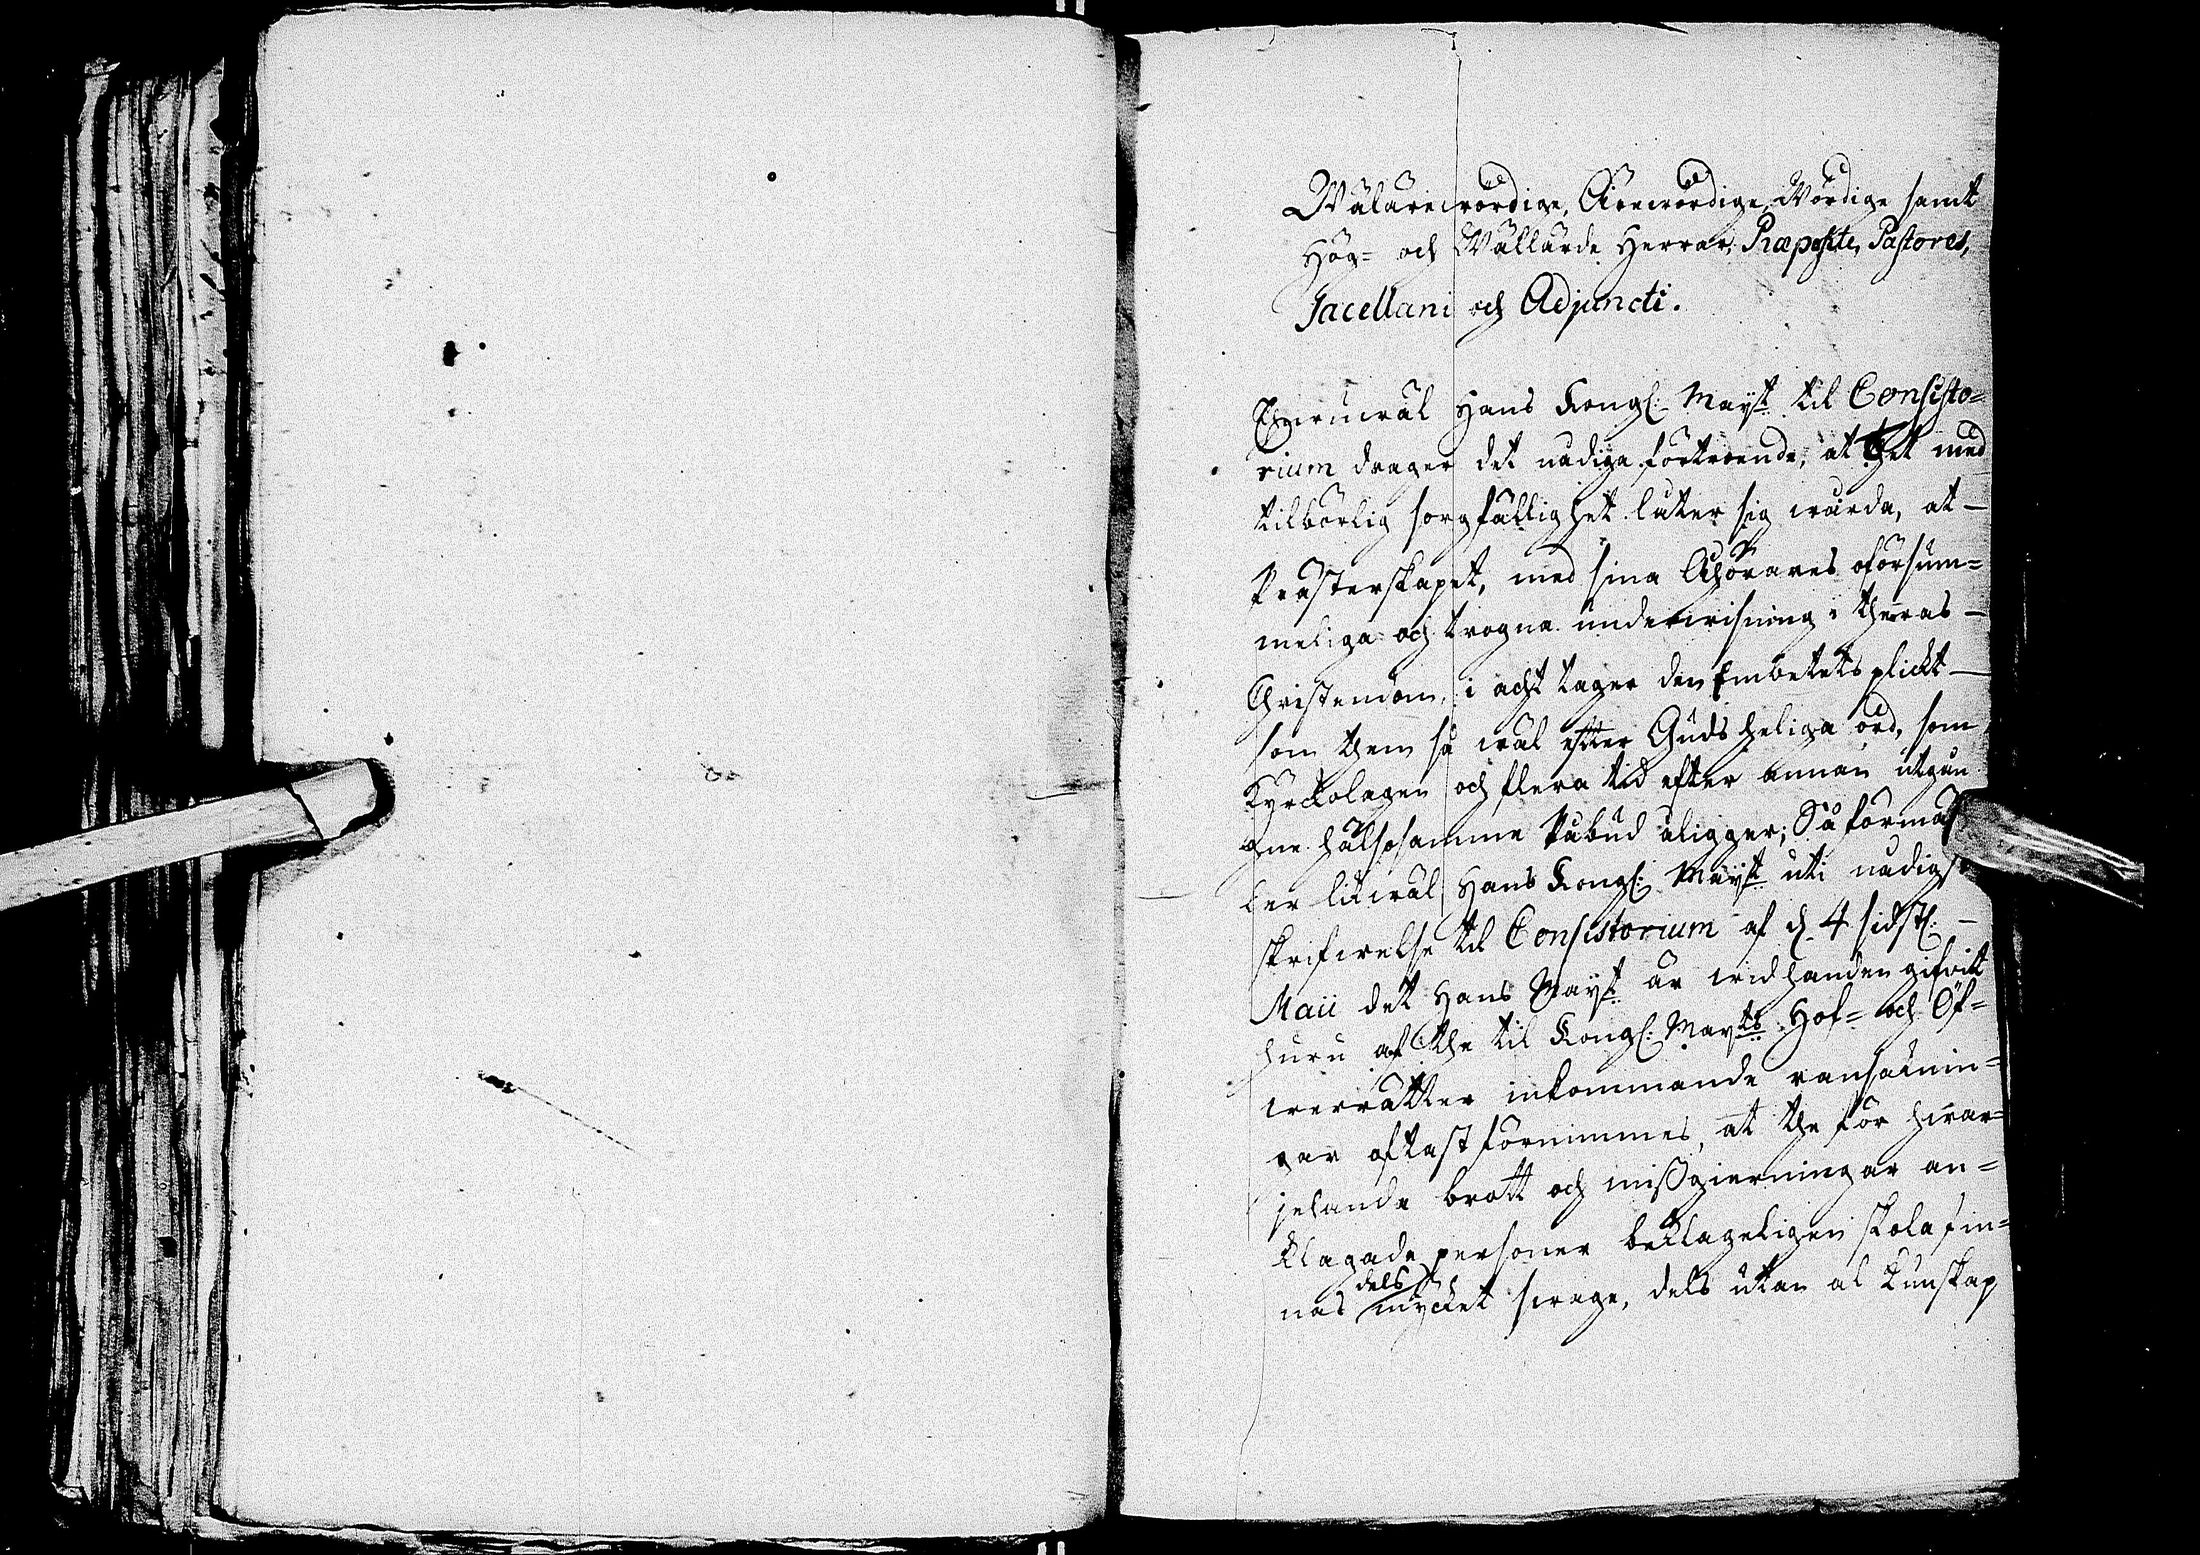 Wälärewördige, Ärewördige, Wördige samt
Hög= och Wällärde Herrar, Præpositi, Pastores,
Sacellani och Adjuncti.
Ehuruwäl Hans Kongl: Mayst til Consisto=
rium drager det nådiga förtroende, at thet med
tilbörlig sorgfällighet låter sig wårda, at
Prästerskapet, med sina Åhörares oförsum=
meliga och trogna underwisning i theras
Christendom, i acht tager den Embetets plickt
som them så wäl efter Guds heliga ord, som
Kyrckolagen och flera tid efter annan utgån
gne hälsosamme Påbud åligger; Så förmä
ler likwäl Hans Kongl: Mayst uti nådigst
skrifwelse til Consistorium af d. 4 sidstl:
Maii det Hans Mayst är widhanden gifwit
huru af the til Kongl: Mayts Hof= och Öf=
werrätter inkommande ransaknin=
gar oftast förnimmes, at the för hwar=
jehanda brott och mißgierningar an=
klagade personer beklageligen skola fin=
nas dels mycket swage, dels utan al kunskap